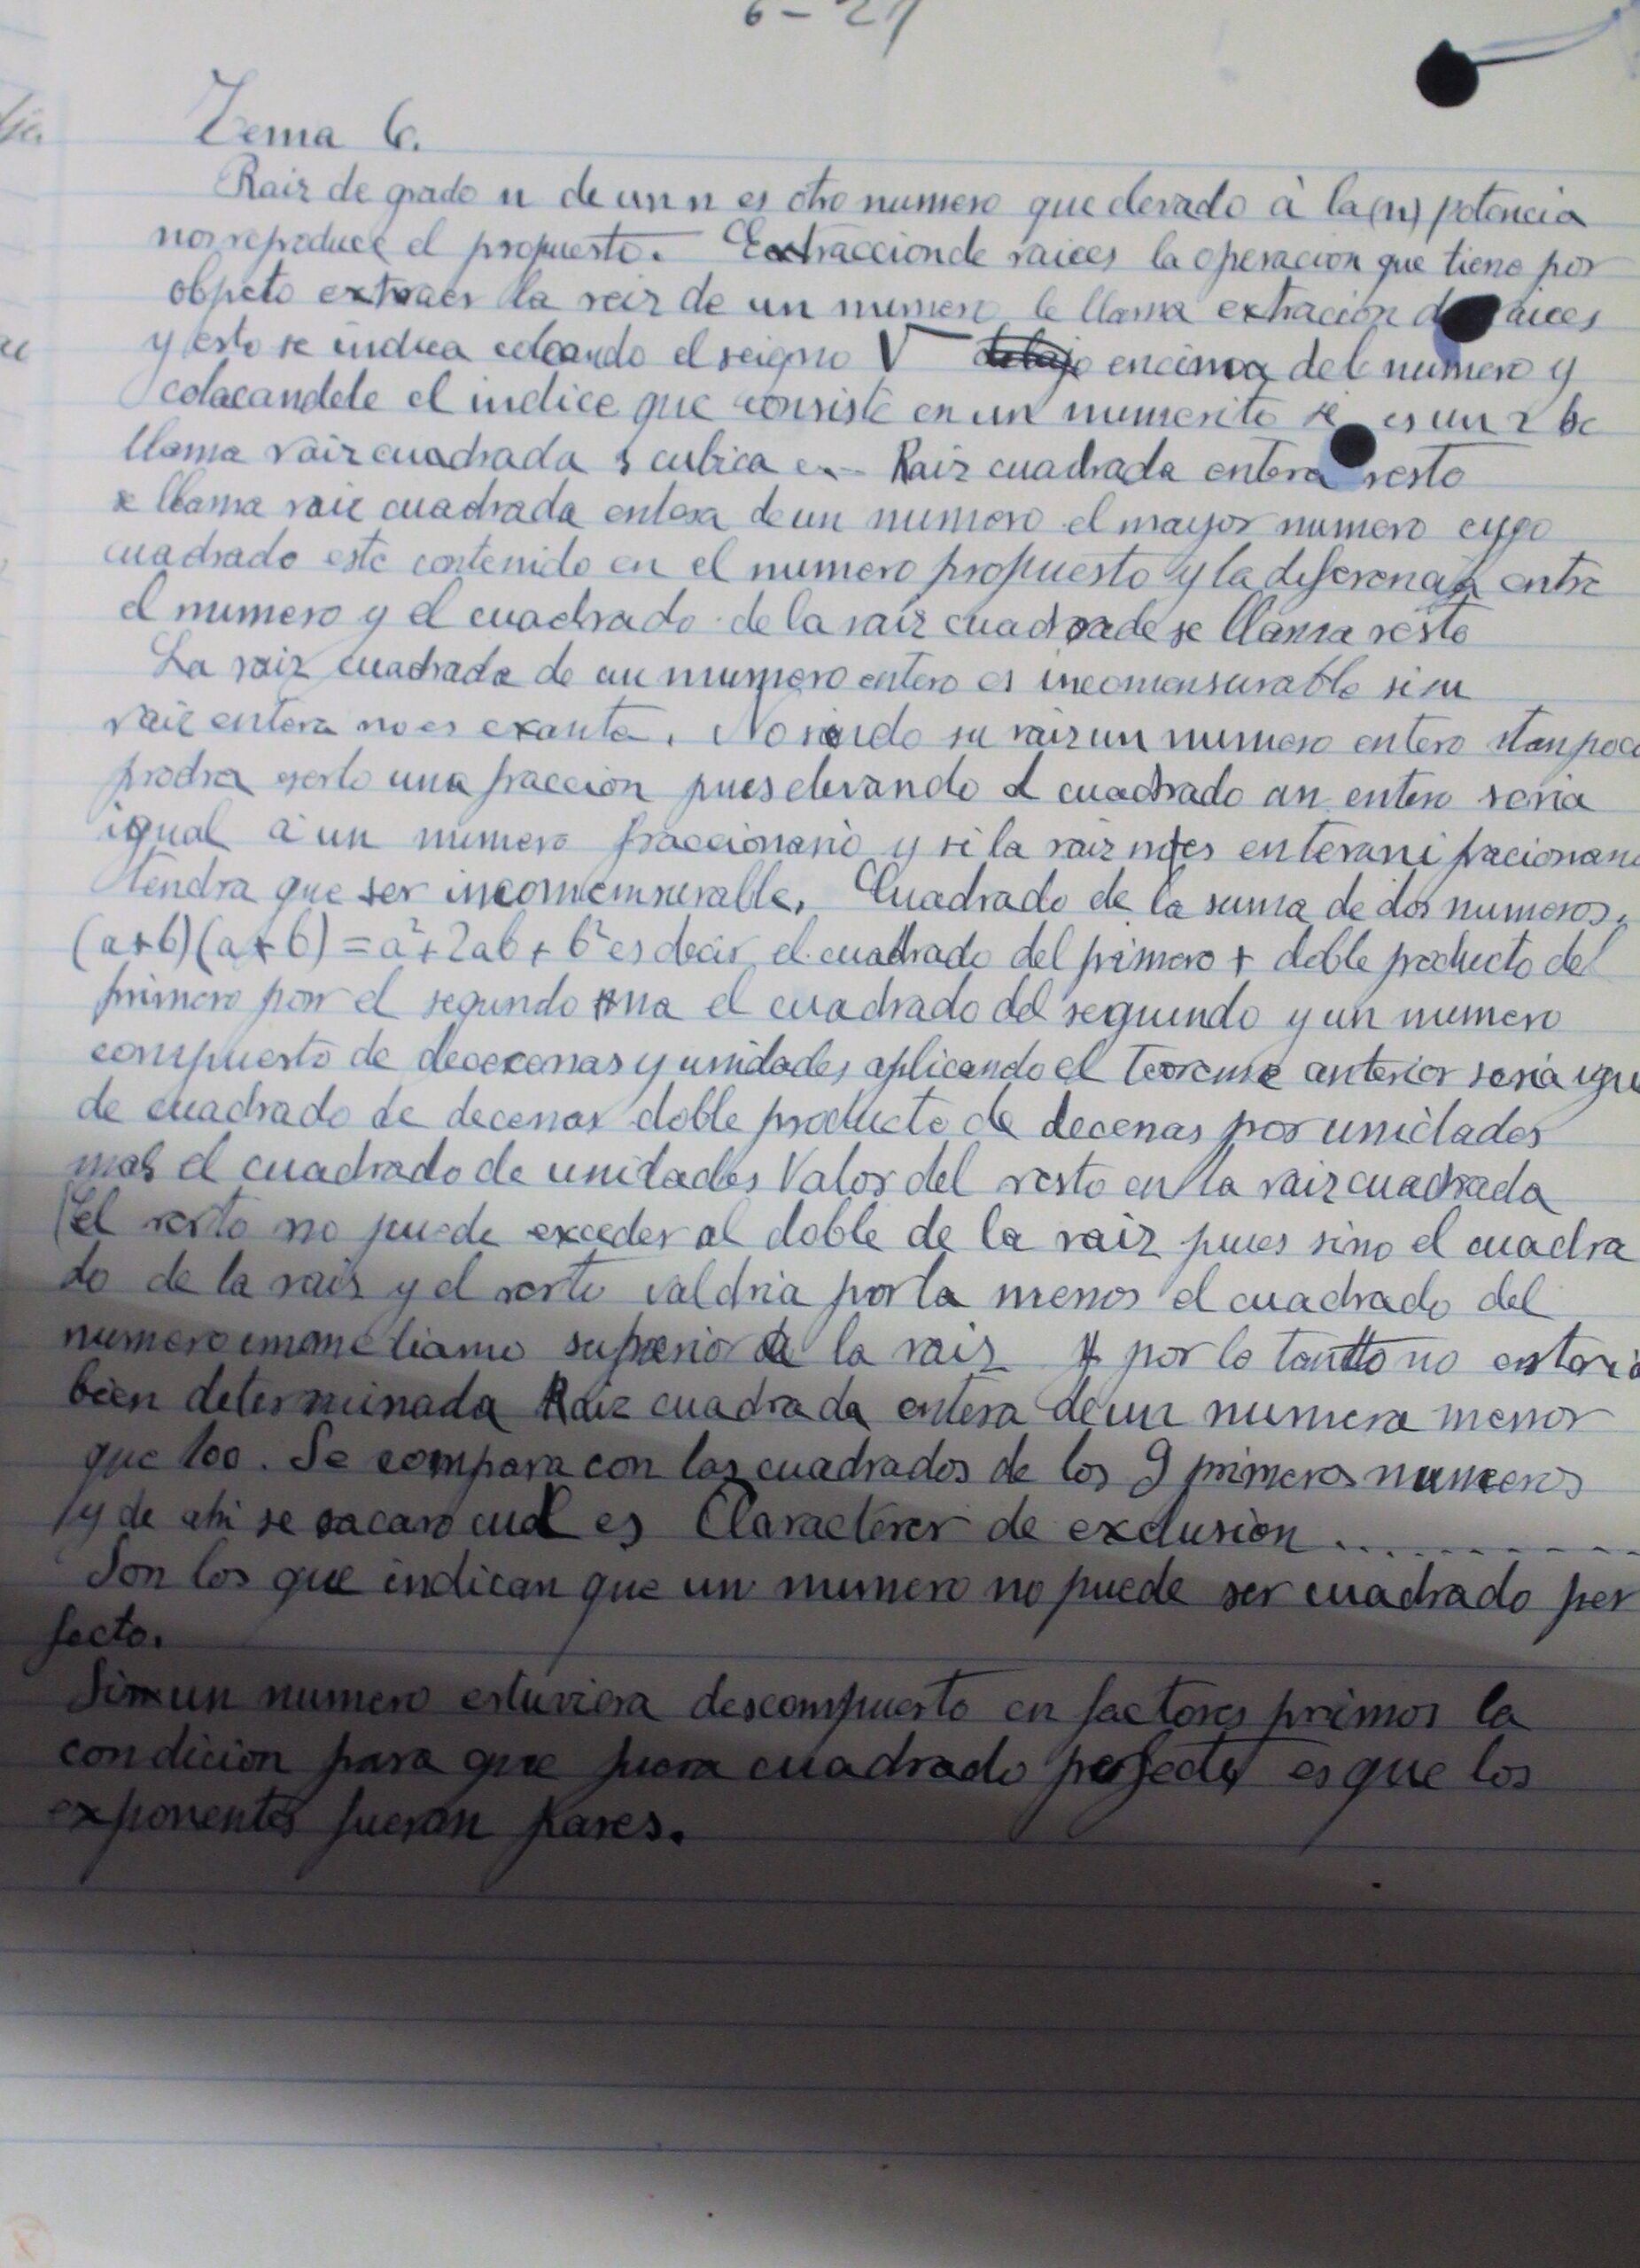 6-21
Tema 6.
Raiz de grado n de un n es otro numero que elevado à la (n) potencia
nos reproduce el propuesto. Extraccion de raices la operacion que tiene por
objeto extraer la reiz de un numero le llama extracion d aices
y esto se indica colocando el seigno √ debajo encima del numero y
colacandole el indice que consiste en un numerito si es un 2 se
llama raiz cuadrada 3 cubica e.. Raiz cuadrada entera resto
se llama raiz cuadrada entera de un numero el mayor numero cuyo
cuadrado este contenido en el numero propuesto y la diferencia entre
el numero y el cuadrado de la raiz cuadrade se llama resto
La raiz cuadrada de un numero entero es incomensurable si su
raiz entera no es exanta. No siendo su raiz un numero entero tanpoco
prodra serlo una fraccion pues elevando al cuadrado un entero seria
igual à un numero fraccionario y si la raiz no es entera ni fracionaria
tendra que ser incomemsurable. Cuadrado de la suma de dos numeros.
(a+b)(a+b)=a²+2ab+b² es decir el cuadrado del primero + doble producto del
primero por el segundo mas el cuadrado del seguindo y un numero
compuesto de dececenas y unidades aplicando el teoreme anterior seria igu
de cuadrado de decenas doble producto de decenas por unidades
mas el cuadrado de unidades Valor del resto en la raiz cuadrada
El resto no puede exceder al doble de la raiz pues sino el cuadra
do de la raiz y el resto valdria por la menos el cuadrado del
numero superior a la raiz y por lo tantto no estaria
bien determinada Raiz cuadrada entera de un numero menor
que 100. Se compara con los cuadrados de los 9 primeros numeros
y de ahi se sacara cual es Claracterer de exclusion ............
Son los que indican que un numero no puede ser cuadrado per
fecto.
Si un numero estuviera descompuesto en factores primos la
condicion para que fuera cuadrado perfecto es que los
exponentes fueran pares.